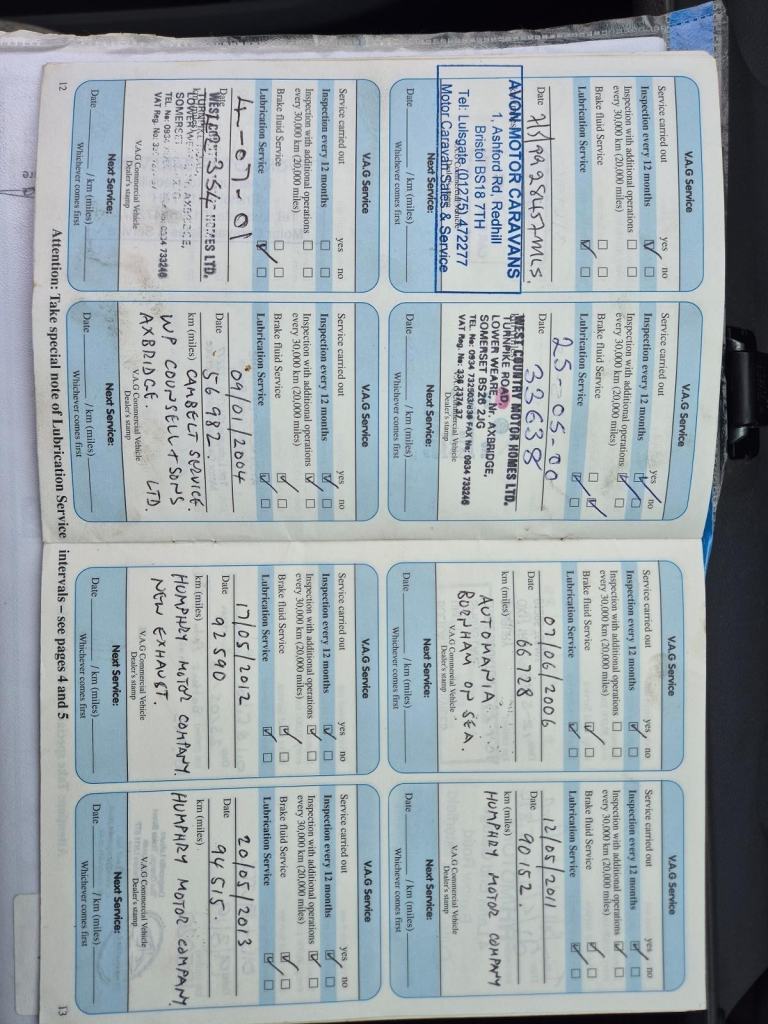 V.A.G Service
Service carried out yes no
Inspection every 12 months
Inspection with additional operations
every 30,000 km (20,000 miles)
Brake fluid Service
Lubrication Service
Date 7/5/99 28457 MLS.
AVON MOTOR CARAVANS
1, Ashford Rd, Redhill
Bristol BS18 7TH
Tel: Lulsgate (01275) 472277
Motor Caravan Sales & Service
Next Service:
Date / km (miles)
Whichever comes first
V.A.G Service
Service carried out yes no
Inspection every 12 months
Inspection with additional operations
every 30,000 km (20,000 miles)
Brake fluid Service
Lubrication Service
25-05-00
Date 33638
WEST COUNTRY MOTOR HOMES LTD.
TURNPIKE ROAD,
LOWER WEARE, Nr. AXBRIDGE,
SOMERSET BS26 2JG
TEL No: 0934 FAX No: 0934 733246
VAT Reg. No.
Next Service:
Date / km (miles)
Whichever comes first
V.A.G Service
Service carried out yes no
Inspection every 12 months
Inspection with additional operations
every 30,000 km (20,000 miles)
Brake fluid Service
Lubrication Service
4-07-01
Date
WEST HOMES LTD.
LOWER AXBRIDGE,
SOMERSET
TEL No: 0934 733246
VAT Reg. No.
V.A.G Commercial Vehicle
Dealer's stamp
Next Service:
Date / km (miles)
Whichever comes first
12
V.A.G Service
Service carried out yes no
Inspection every 12 months
Inspection with additional operations
every 30,000 km (20,000 miles)
Brake fluid Service
Lubrication Service
09/01/2004
Date 56982.
km (miles) CAMBELT SERVICE.
V.A.G Commercial Vehicle
Dealer's stamp
WP COUNSELL + SONS LTD.
AXBRIDGE.
Next Service:
Date / km (miles)
Whichever comes first
V.A.G Service
Service carried out yes no
Inspection every 12 months
Inspection with additional operations
every 30,000 km (20,000 miles)
Brake fluid Service
Lubrication Service
07/06/2006
Date 66728
km (miles)
AUTOMANIA.
BURNHAM ON SEA.
V.A.G Commercial Vehicle
Dealer's stamp
Next Service:
Date / km (miles)
Whichever comes first
V.A.G Service
Service carried out yes no
Inspection every 12 months
Inspection with additional operations
every 30,000 km (20,000 miles)
Brake fluid Service
Lubrication Service
12/05/2011
Date 90152.
km (miles)
HUMPHRY MOTOR COMPANY
V.A.G Commercial Vehicle
Dealer's stamp
Next Service:
Date / km (miles)
Whichever comes first
V.A.G Service
Service carried out yes no
Inspection every 12 months
Inspection with additional operations
every 30,000 km (20,000 miles)
Brake fluid Service
Lubrication Service
17/05/2012
Date 92590
km (miles)
HUMPHRY MOTOR COMPANY.
V.A.G Commercial Vehicle
Dealer's stamp
NEW EXHAUST.
Next Service:
Date / km (miles)
Whichever comes first
V.A.G Service
Service carried out yes no
Inspection every 12 months
Inspection with additional operations
every 30,000 km (20,000 miles)
Brake fluid Service
Lubrication Service
20/05/2013
Date 94515.
km (miles)
HUMPHRY MOTOR COMPANY
V.A.G Commercial Vehicle
Dealer's stamp
Next Service:
Date / km (miles)
Whichever comes first
13
Attention: Take special note of Lubrication Service intervals – see pages 4 and 5